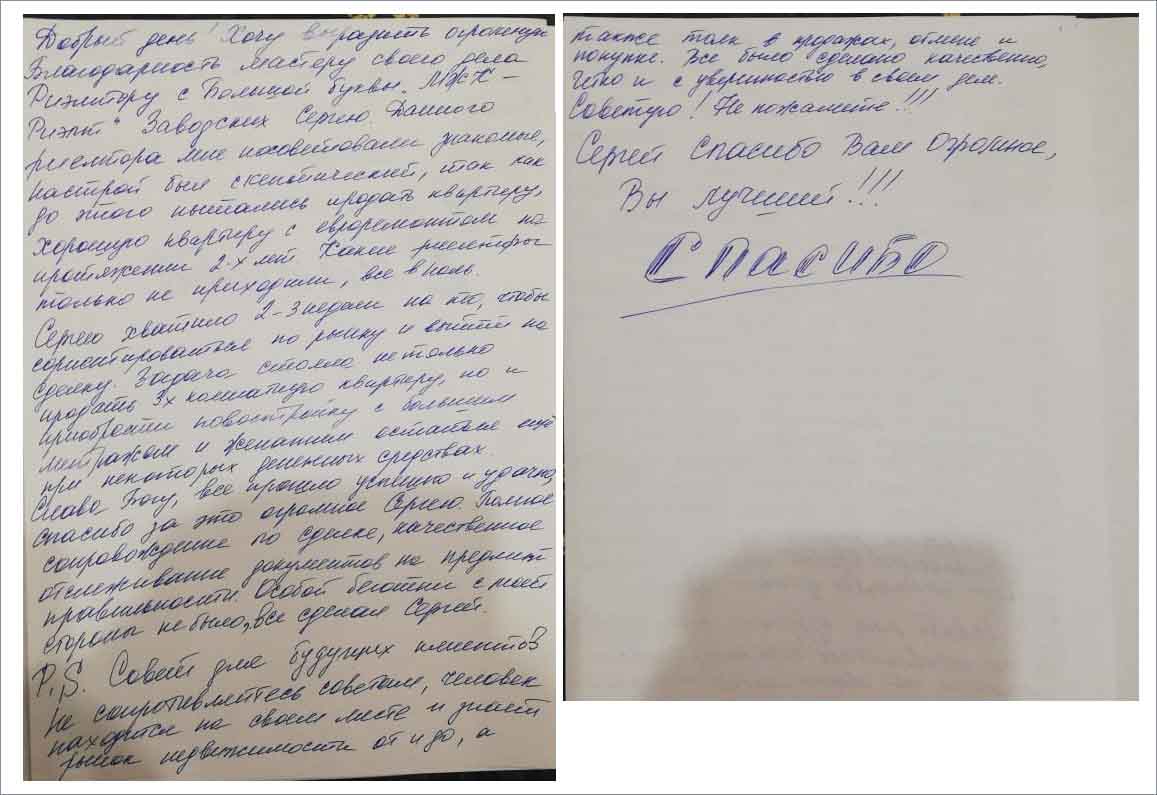 Добрый день! Хочу выразить огромную
благодарность мастеру своего дела
Риэлтору с Большой буквы. МЖК –
Риэлт" Заворских Сергею. Данного
риелтора мне посоветовали знакомые,
настрой был скептический, так как
до этого пытались продать квартиру,
хорошую квартиру с евроремонтом на
протяжении 2-х лет. Какие риелторы
только не приходили, все в ноль.
Сергею хватило 2-3 недели на то, чтобы
сориентироваться по рынку и выйти на
сделку. Задача стояла не только
продать 3х комнатную квартиру, но и
приобрести новостройку с большим
метражом и желанием остаться ещё
при некоторых денежных средствах.
Слава Богу, все прошло успешно и удачно,
спасибо за это огромное Сергею. Полное
сопровождение по сделке, качественное
отслеживание документов на предмет
правильности. Особой беготни с моей
стороны не было, все сделал Сергей.
P.S. Совет для будущих клиентов
не сопротивляйтесь советам, человек
находится на своем месте и знает
рынок недвижимости от и до, а
также толк в продажах, обмене и
покупке. Все было сделано качественно,
четко и с уверенностью в своем деле.
Советую! Не пожалеете!!!
Сергей спасибо Вам огромное,
Вы лучший!!!
СПАСИБО